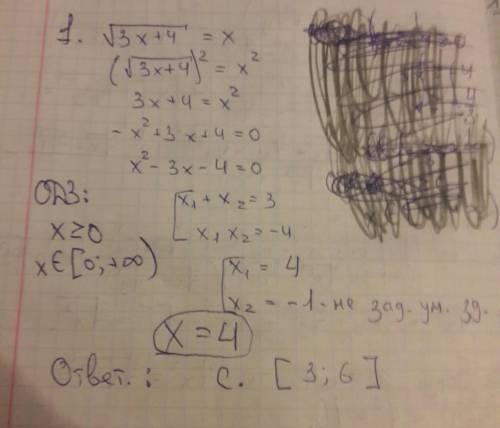 1. √3x+4 = x
(√3x+4)² = x²
3x+4 = x²
-x²+3x+4=0
x²-3x-4=0
ОДЗ:
x≥0
x∈[0;+∞)
x₁+x₂=3
x₁x₂=-4
x₁ = 4
x₂ = -1 - не зад. ум. зд.
x=4
Ответ.: C. [3;6]